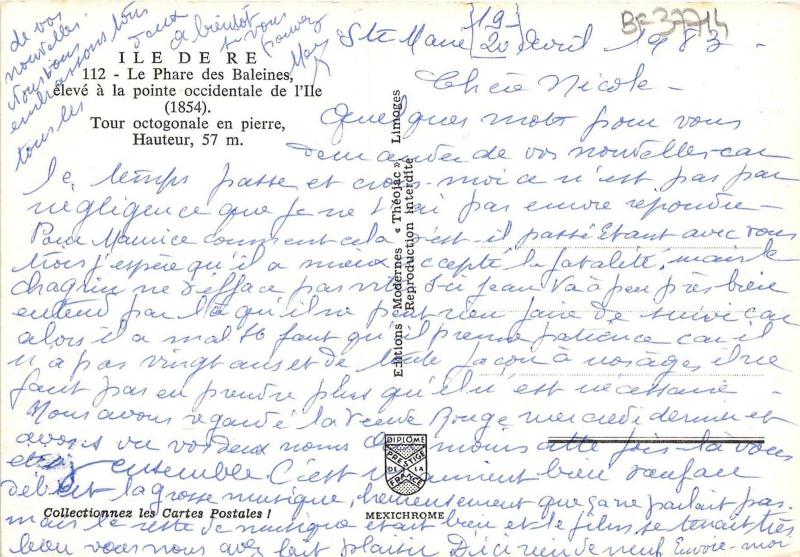 BF 37714
ILE DE RE
112 - Le Phare des Baleines,
élevé à la pointe occidentale de l'Ile
(1854).
Tour octogonale en pierre,
Hauteur, 57 m.
Ste Marie 19-20 Avril 1983 -
Chère Nicole -
Quelques mots pour vous
demander de vos nouvelles car
le temps passe et crois moi ce n'est pas par
négligence que je ne t'ai pas encore répondu -
Pour Maurice comment cela s'est-il passé Etant avec vous
trois j'espère qu'il a mieux accepté la fatalité, mais le
chagrin ne s'efface pas vite Ici Jean va à peu près bien
entend par là qu'il ne peut rien faire de suivi car
alors il a mal Il faut qu'il prenne patience car il
n'a pas vingt ans et de toute façon à nos âges il ne
faut pas en prendre plus qu'il n'est nécessaire -
Nous avons regardé la Veuve Rouge mercredi dernier et
avons vu vos deux noms cette fois là vous
étiez ensemble C'est vraiment bien sauf au
début la grosse musique, heureusement que ça ne parlait pas.
mais le reste de musique était bien et le film se tenait très
bien vous nous avez fait plaisir D'ici rien de neuf Envoie-moi
de vos
nouvelles.
Nous vous
embrassons tous
tous les
deux
A bientôt
si vous pouvez
Editions Modernes « Théojac » Limoges
Reproduction interdite
DIPLOME
PRESTIGE
DE LA
FRANCE
Collectionnez les Cartes Postales !
MEXICHROME